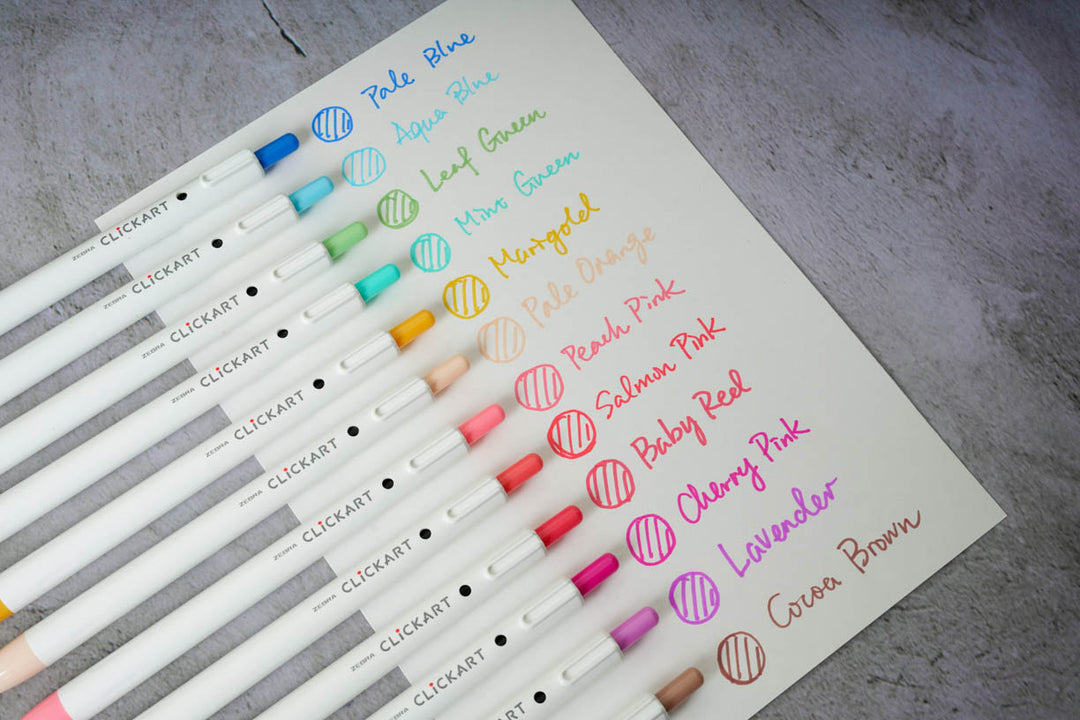 Pale Blue
Aqua Blue
Leaf Green
Mint Green
Marigold
Pale Orange
Peach Pink
Salmon Pink
Baby Red
Cherry Pink
Lavender
Cocoa Brown
ZEBRA CLiCKART
ZEBRA CLiCKART
ZEBRA CLiCKART
ZEBRA CLiCKART
ZEBRA CLiCKART
ZEBRA CLiCKART
ZEBRA CLiCKART
ZEBRA CLiCKART
ZEBRA CLiCKART
CLiCKART